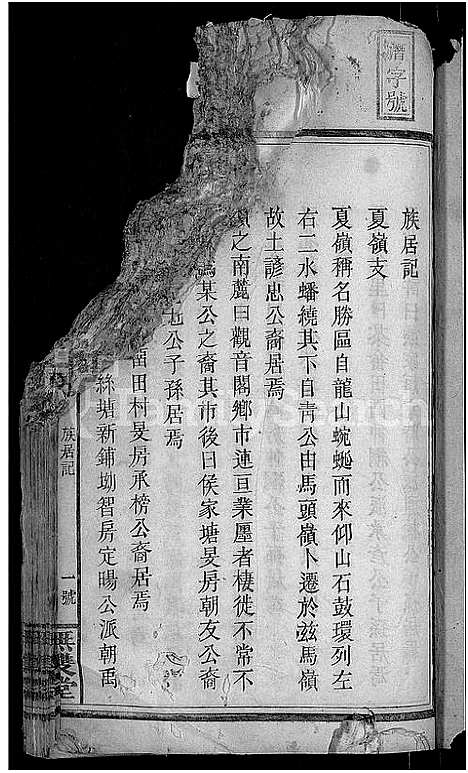 字號
族居記
夏嶺支
夏嶺稱名勝區自龍山蜿蜒而來仰山石鼓環列左
右二水蟠繞其下自青公由馬頭嶺卜遷於兹馬嶺
故土諺忠公裔居焉
之南麓曰觀音閣鄉市連亘業廛者棲徙不常不
某公之裔其市後曰侯家塘旻房朝友公裔
公子孫居焉
田村旻房承榜公裔居焉
絲塘新鋪坳智房定暘公派朝禹
族居記
一號
無雙堂